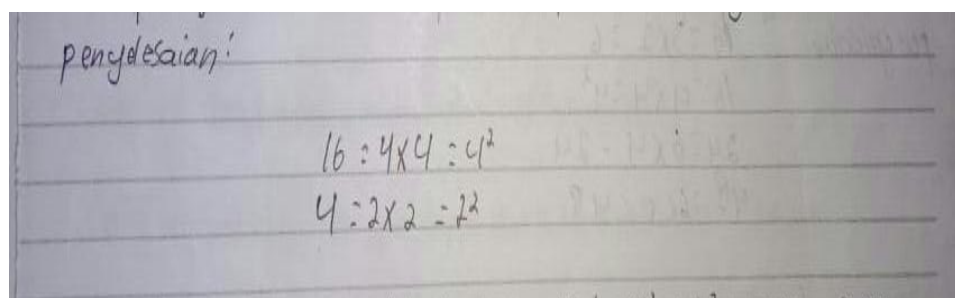 penyelesaian:
16 = 4x4 = 4²
4 = 2x2 = 2²